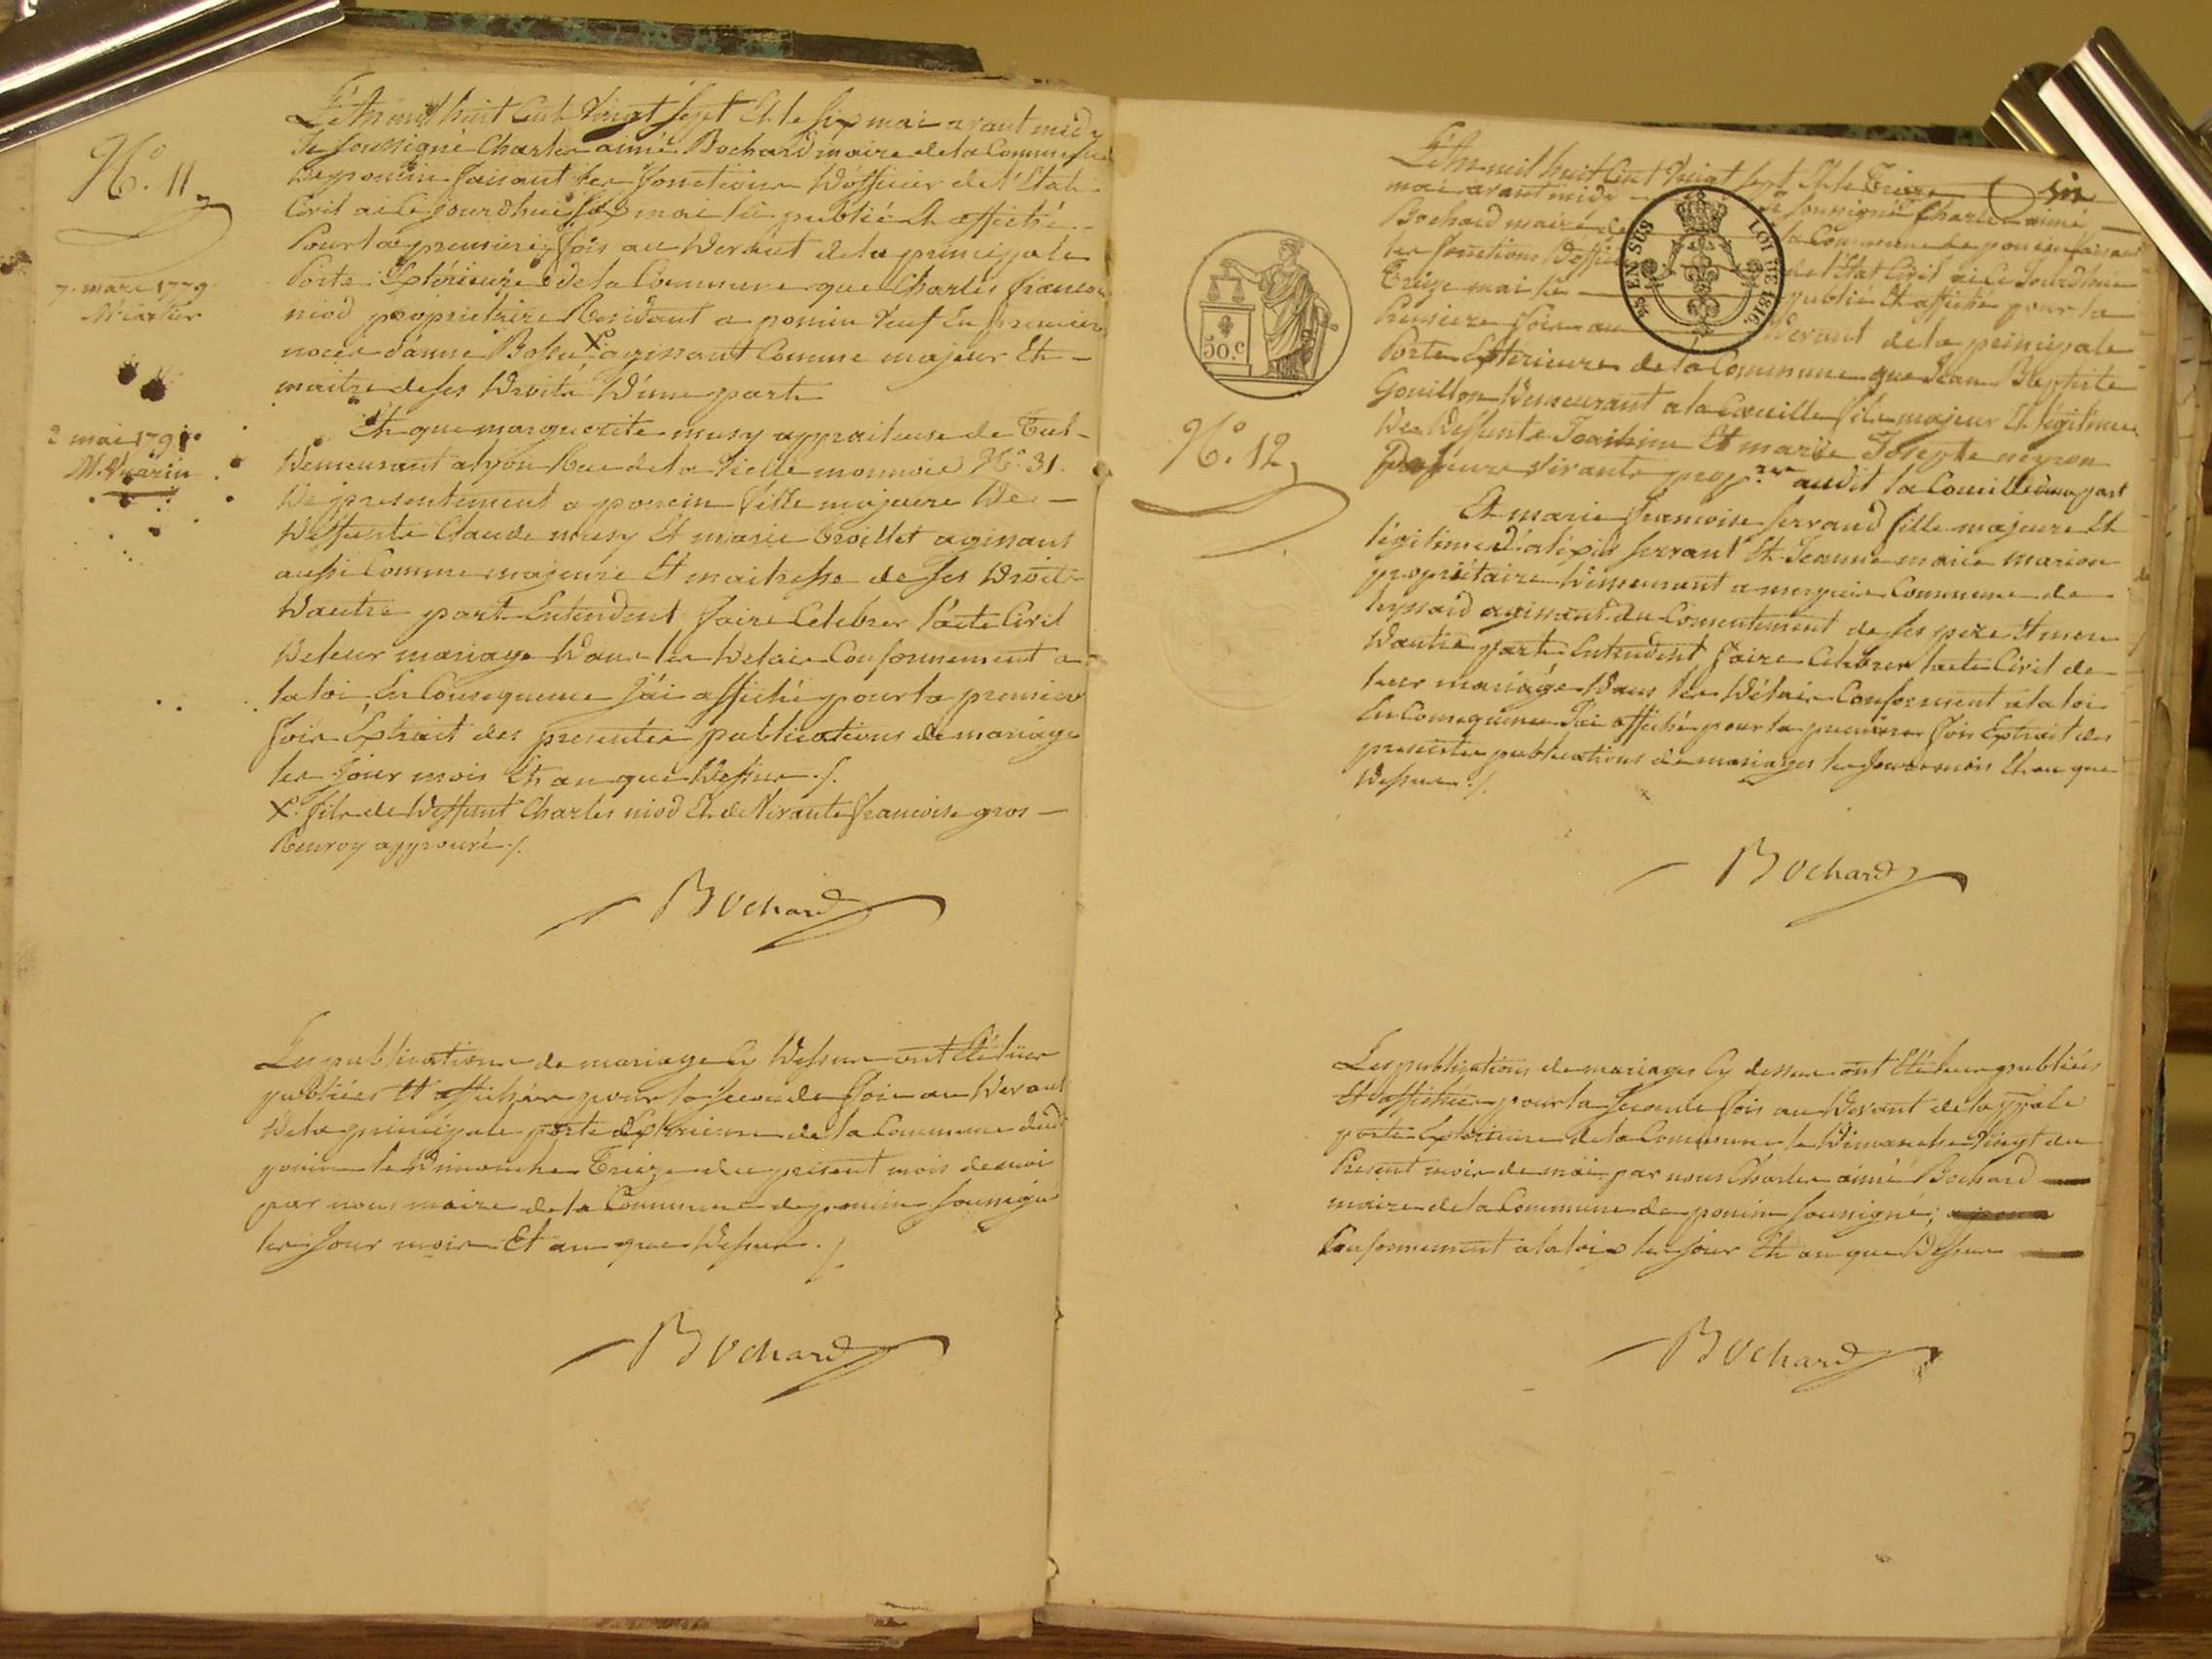 N.° 11
7. mars 1779
2 mai 179
L'An mil huit Cent Vingt sept Et le six mai avant midy
Je soussigné Charles aimé Bochard maire de la Commune
de poncin faisant les fonctions d'officier de l'Etat
Civil ai Ce jourdhui six mai lu publié Et affiché
Pour la premiere fois au devant de la principale
Porte Extérieure de la Commune que Charles francois
niod proprietaire Residant a poncin Veuf En premier
noces d'anne X agissant Comme majeur Et
maitre de ses droits d'une part
Et que marguerite musy appraiteuse de Tul
demeurant a lyon Rue de la Vielle monnoie N.° 31.
de presentement a poncin fille majeure de
deffunts Claude musy Et marie Troillet agissant
aussi Comme majeure Et maitresse de ses droits
d'autre part Entendent faire Celebrer l'acte Civil
de leur mariage dans les delais Conformement a
la loi En Consequence J'ai affiché pour la premier
fois Extrait des presentes publications de mariage
les Jour mois Et an que dessus ./.
X. fils de deffunt Charles niod Et de Vivante francoise gros
Renvoy approuvé ./.
Bochard
Les publications de mariage Cy dessus ont Eté lues
publiées Et affichées pour la seconde fois au devant
de la principale porte Extérieure de la Commune dudt
poncin le dimanche Treize du present mois de mai
par nous maire de la Commune de poncin soussigné
les Jour mois Et an que dessus ./.
Bochard
50.c
N.° 12
EN SUS
LOI DE 1816.
L'An mil huit Cent Vingt sept Et le Treize
mai avant midy Je soussigné Charles aimé
Bochard maire de la Commune de poncin faisant
les fonctions d'officier de l'Etat Civil ai Ce Jourdhui
Treize mai lu publié Et affiché pour la
Premiere fois au devant de la principale
Porte Extérieure de la Commune que Jean Baptiste
Gouillon demeurant a la Coeuille fils majeur Et legitime
de deffunts Joachim Et marie Josepte neyron
Vivante propre audit la Coeuille d'une part
Et marie francoise ferraud fille majeure Et
légitime d'alexis ferrant Et Jeanne marie marion
propriétaire demeurant a Commune de
leyssard agissant du Consentement de ses pere Et mere
d'autre part Entendent faire Celebrer l'acte Civil de
leur mariage dans les délais Conforment a la loi
En Consequence J'ai affiché pour la premiere fois Extrait des
presentes publications de mariages les Jour mois Et an que
dessus ./.
Bochard
Les publications de mariages Cy dessus ont Eté lues publiées
Et affichées pour la seconde fois au devant de la ppale
porte Extérieure de la Commune le dimanche Vingt du
Present mois de mai par nous Charles aimé Bochard
maire de la Commune de poncin soussigné;
Conformement a la loi les Jour Et an que dessus
Bochard